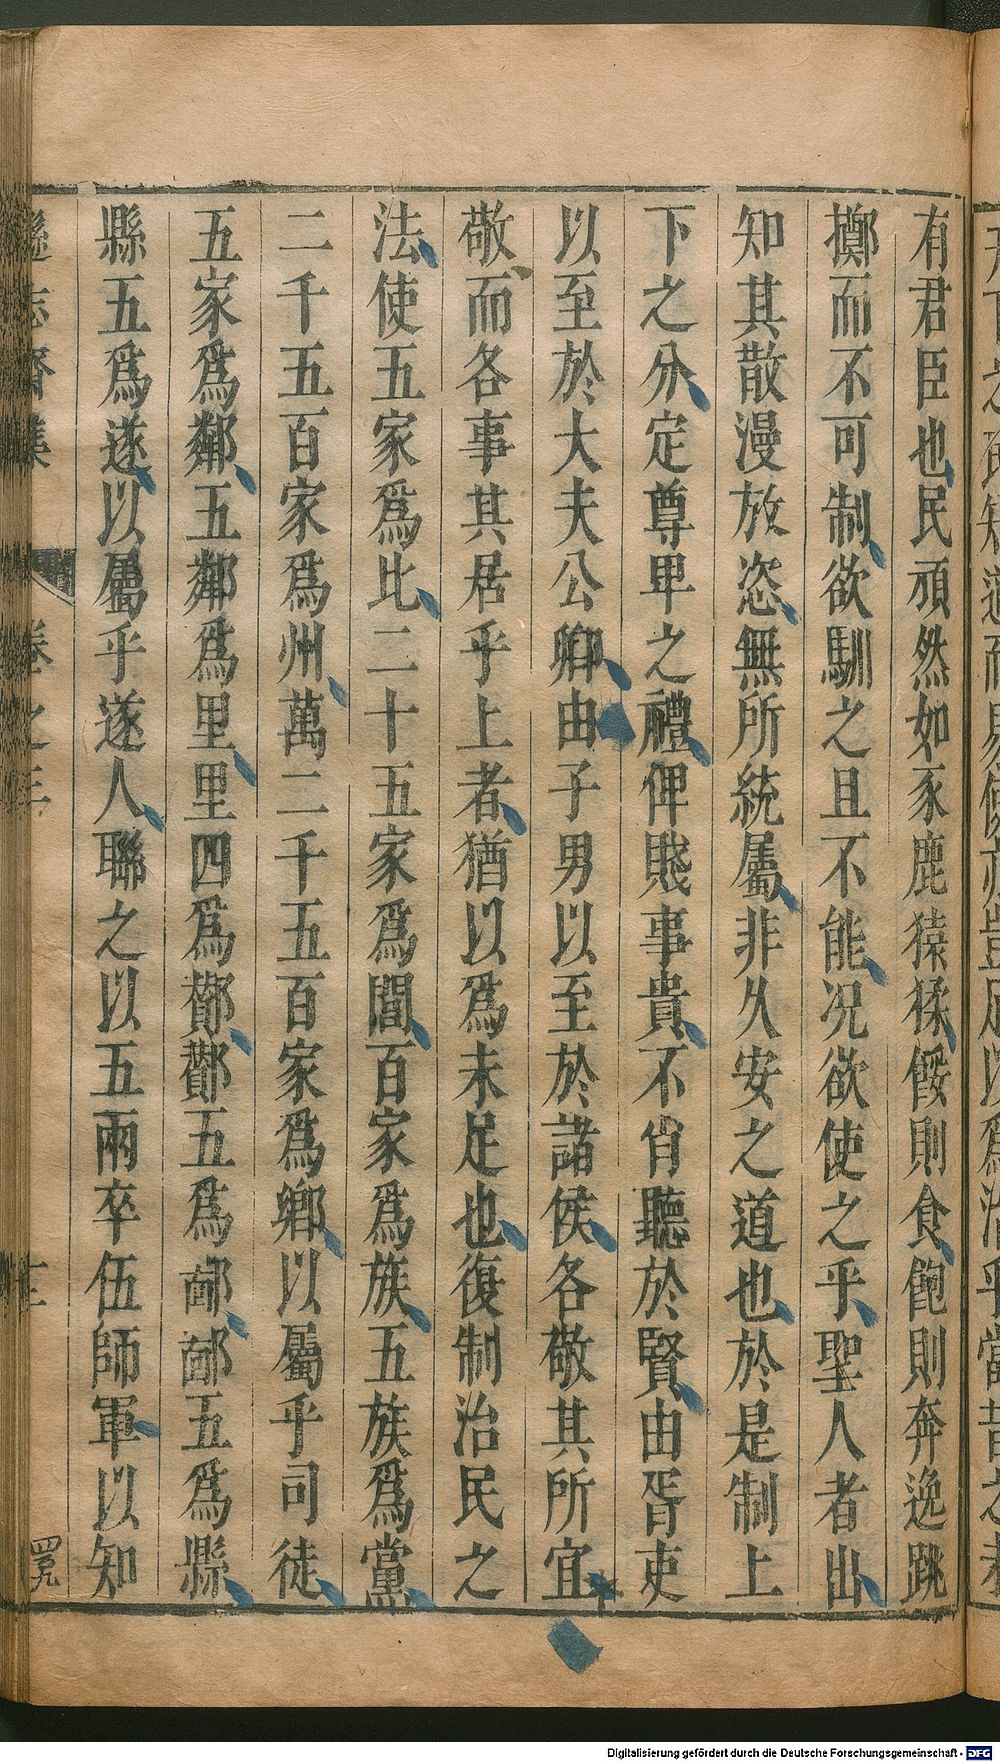 有君臣也民頑然如豕鹿猿猱餒則食飽則奔逸跳
擲而不可制欲馴之且不能况欲使之乎聖人者出
知其散漫放恣無所統屬非久安之道也於是制上
下之分定尊卑之禮俾賤事貴不肖聽於賢由胥吏
以至於大夫公卿由子男以至於諸侯各敬其所宜
敬而各事其居乎上者猶以爲未足也復制治民之
法使五家爲比二十五家爲閭百家爲族五族爲黨
二千五百家爲州萬二千五百家爲鄉以屬乎司徒
五家爲鄰五鄰爲里里四爲酇酇五爲鄙鄙五爲縣
縣五爲遂以屬乎遂人聯之以五兩卒伍師軍以知
遜志齋集 卷之三 十三
Digitalisierung gefördert durch die Deutsche Forschungsgemeinschaft - DFG